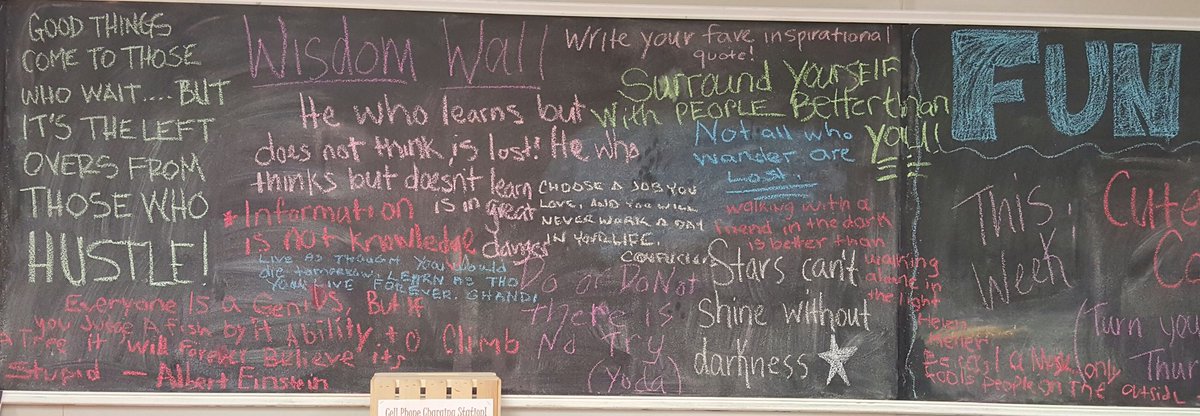 GOOD THINGS
COME TO THOSE
WHO WAIT.... BUT
IT'S THE LEFT
OVERS FROM
THOSE WHO
HUSTLE!
Wisdom Wall
Write your fave inspirational
quote!
Surround Yourself
with PEOPLE Better than
YOU!!
He who learns but
does not think, is lost! He who
thinks but doesn't learn
is in great
danger
* Information
is not knowledge
Not all who
wander are
Lost.
CHOOSE A JOB YOU
LOVE, AND YOU WILL
NEVER WORK A DAY
IN YOUR LIFE.
CONFUCIUS
walking with a
friend in the dark
is better than
walking
alone in
the light
Helen
LIVE AS THOUGH YOU WOULD
die tomorrow. LEARN AS THO
YOU LIVE FOREVER. GHANDI
Everyone Is a Genius, But if
you Judge A fish by it Ability to Climb
A Tree it will forever Believe its
Stupid — Albert Einstein
Do or Do Not
there is
No Try
(Yoda)
Stars can't
shine without
darkness
a Mask, only
fools people on the outside
FUN
This
Week:
Cute
Co
(Turn you
Thur
Cell Phone Charging Station!